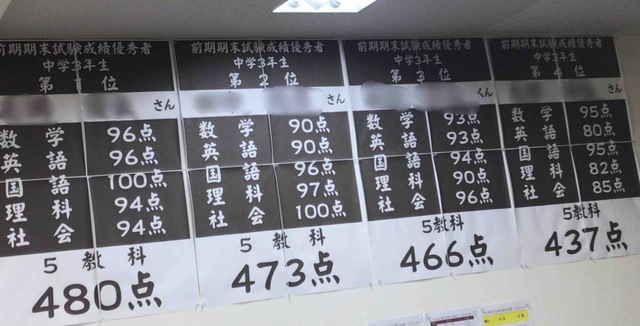 前期期末試験成績優秀者
中学3年生
第1位
さん
数学 96点
英語 96点
国語 100点
理科 94点
社会 94点
5教科
480点
前期期末試験成績優秀者
中学3年生
第2位
さん
数学 90点
英語 90点
国語 96点
理科 97点
社会 100点
5教科
473点
前期期末試験成績優秀者
中学3年生
第3位
くん
数学 93点
英語 93点
国語 94点
理科 90点
社会 96点
5教科
466点
前期期末試験成績優秀者
中学3年生
第4位
さん
数学 95点
英語 80点
国語 95点
理科 82点
社会 85点
5教科
437点